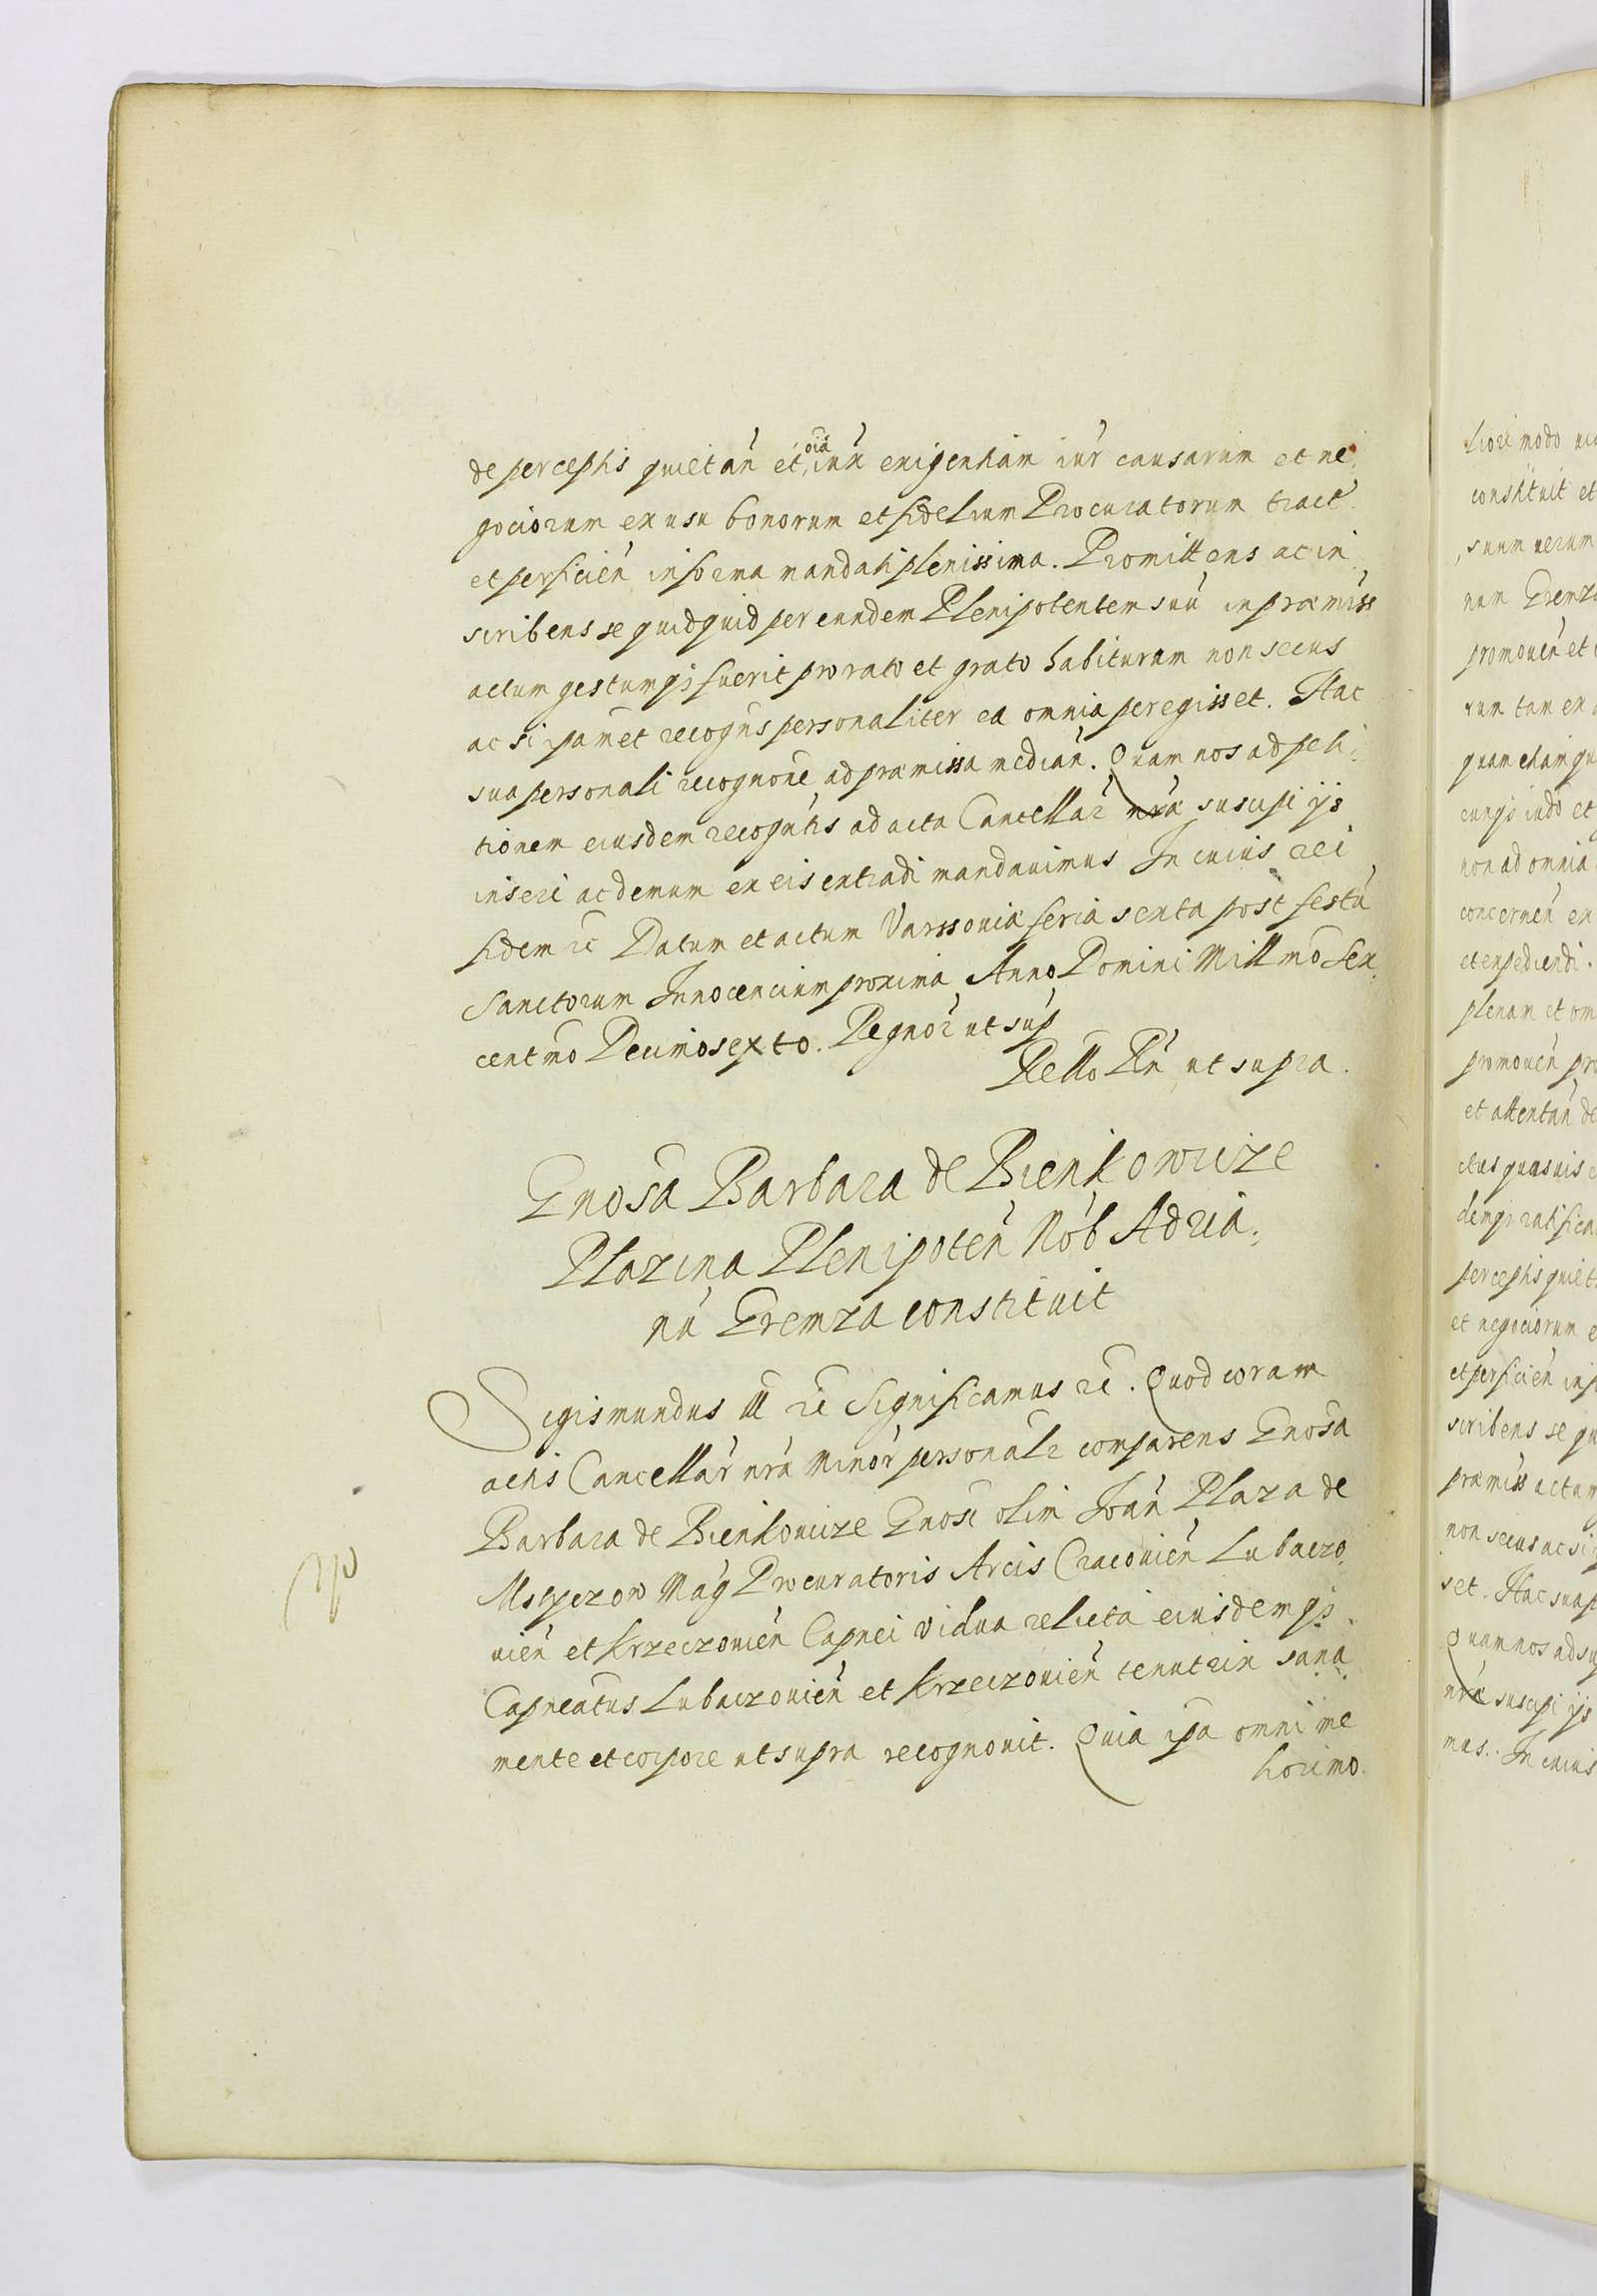 de perceptis quietan̄ et oīa iux̄ exigentiam iur̄ causarum et ne,
gociorum ex usu bonorum et fidelium Procuratorum tract̄
et perficien̄ in forma mandati plenissima. Promittens ac in,
scribens se quidquid per eundem Plenipotentem suū in præmiss̄
actum gestumq₃ fuerit pro rato et grato habiturum non secus
ac si ipamet recogn̄s personaliter ea omnia peregisset. Hac
sua personali recognōne ad præmissa median̄. Quam nos ad peti,
tionem eiusdem recogn̄tis ad acta Cancellar̄ nr̄æ suscipi ijs
inseri ac demum ex eis extradi mandauimus In cuius rei
fidem ec̄ Datum et actum Varssouiæ feria sexta post festū
Sanctorum Innocencium proxima Anno Domini Millmō Sex,
centmō Decimosexto. Regnor̄ ut sup̄
Rellō Rn̄ ut supra.
Gnōsa Barbara de Bienkowicze
Plazina Plenipoten̄ Nob̄ Adria,
nū Gremza constituit
Sigismundus III ec̄ Significamus ec̄. Quod coram
actis Cancellar̄ nr̄a Minor̄ personalr̄ comparens Gnōsa
Barbara de Bienkowicze Gnōsi olim Ioan̄ Plaza de
Msczyczow Maḡ Procuratoris Arcis Cracouien̄ Lubaczo,
uien̄ et Krzeczouien̄ Capnei vidua relicta eiusdemq₃
Capneatus Lubaczouien̄ et Krzeczouien̄ tenutrix sana
mente et corpore ut supra recognouit. Quia ipa omni me
liori mo.
liori modo
constituit et
suum uerum
num Gremza
promouen̄ et
rum tam ex
quam etiam
cunq₃ iudō et
non ad omnia
concernen̄ ex
et expediendi.
plenam et om
promouen̄ pro
et attentan̄ de
ctus quasuis
demq₃ ratifica
perceptis quiet
et negociorum e
et perficien̄ in
scribens se qu
præmiss̄ actum
non secus ac si
set. Hac sua p
Quam nos ad
nr̄æ suscipi ijs
mus. In cuius